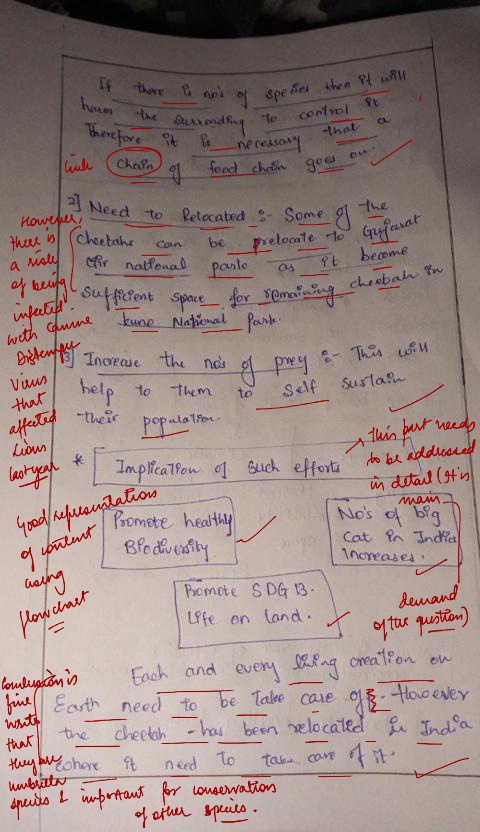 If there is no's of species then it will
harm the surrounding to control it
Therefore it is necessary that a
chain of food chain goes on.
2] Need to Relocated :- Some of the
cheetahs can be relocate to Gujarat
Gir national park as it become
sufficient space for remaining cheetah in
kuno National Park.
However,
there is
a risk
of being
infected
with canine
Distemper
Virus
that
affected
Lions
last year
3] Increase the no's of prey :- This will
help to them to self sustain
their population.
* Implication of such efforts
This part needs
to be addressed
in detail (It is
main
demand
of the question)
Good representation
of content
using
flowchart
Promote healthy
Biodiversity
No's of big
Cat in India
Increases.
Promote SDG 13.
Life on land.
Each and every living creation on
Earth need to be take care of. However
the cheetah has been relocated in India
where it need to take care of it.
Conclusion is
fine
write
that
they are
umbrella
species & important for conservation
of other species.